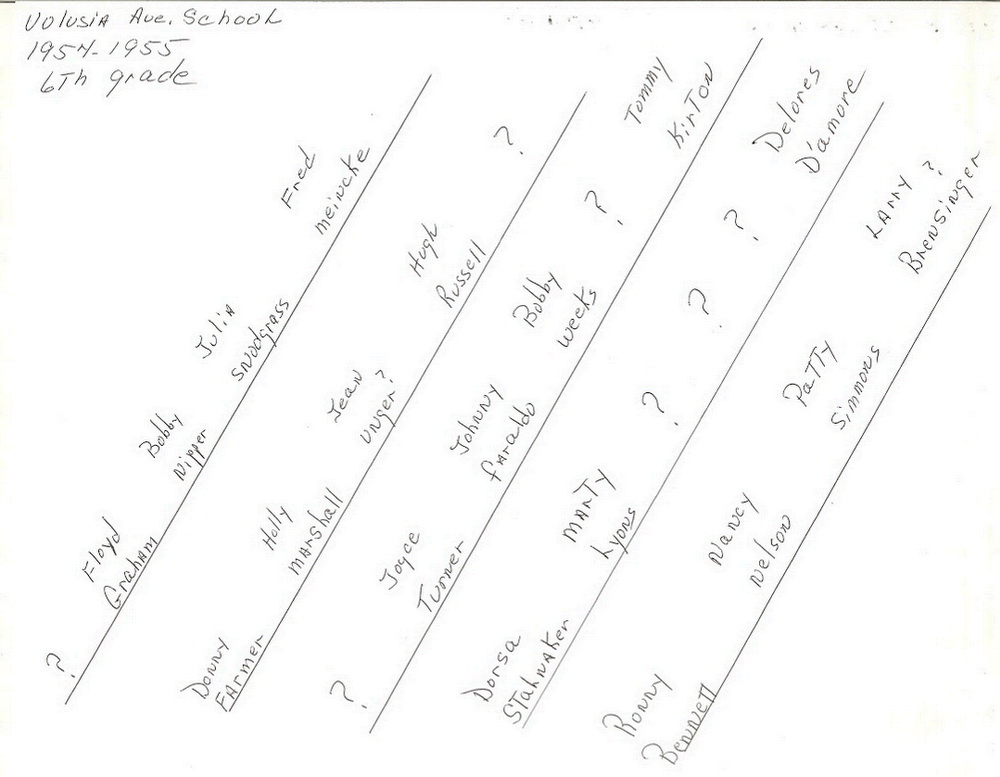 Volusia Ave. School
1954-1955
6Th grade
?
Floyd
Graham
Bobby
Nipper
Julia
Snodgrass
Fred
meincke
Donny
Farmer
Holly
Marshall
Jean
Unger?
Hugh
Russell
?
?
Joyce
Turner
Johnny
Faraldo
Bobby
Weeks
?
Tommy
Kirton
Dorsa
Stahnaker
Marty
Lyons
?
?
?
Delores
D'amore
Ronny
Bennett
Nancy
Nelson
Patty
Simmons
Larry ?
Brensinger